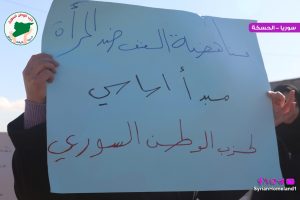 سوريا - الحسكة
مناهضة العنف ضد المرأة
مبدأ أساسي
لحزب الوطن السوري
SyrianHomeland1